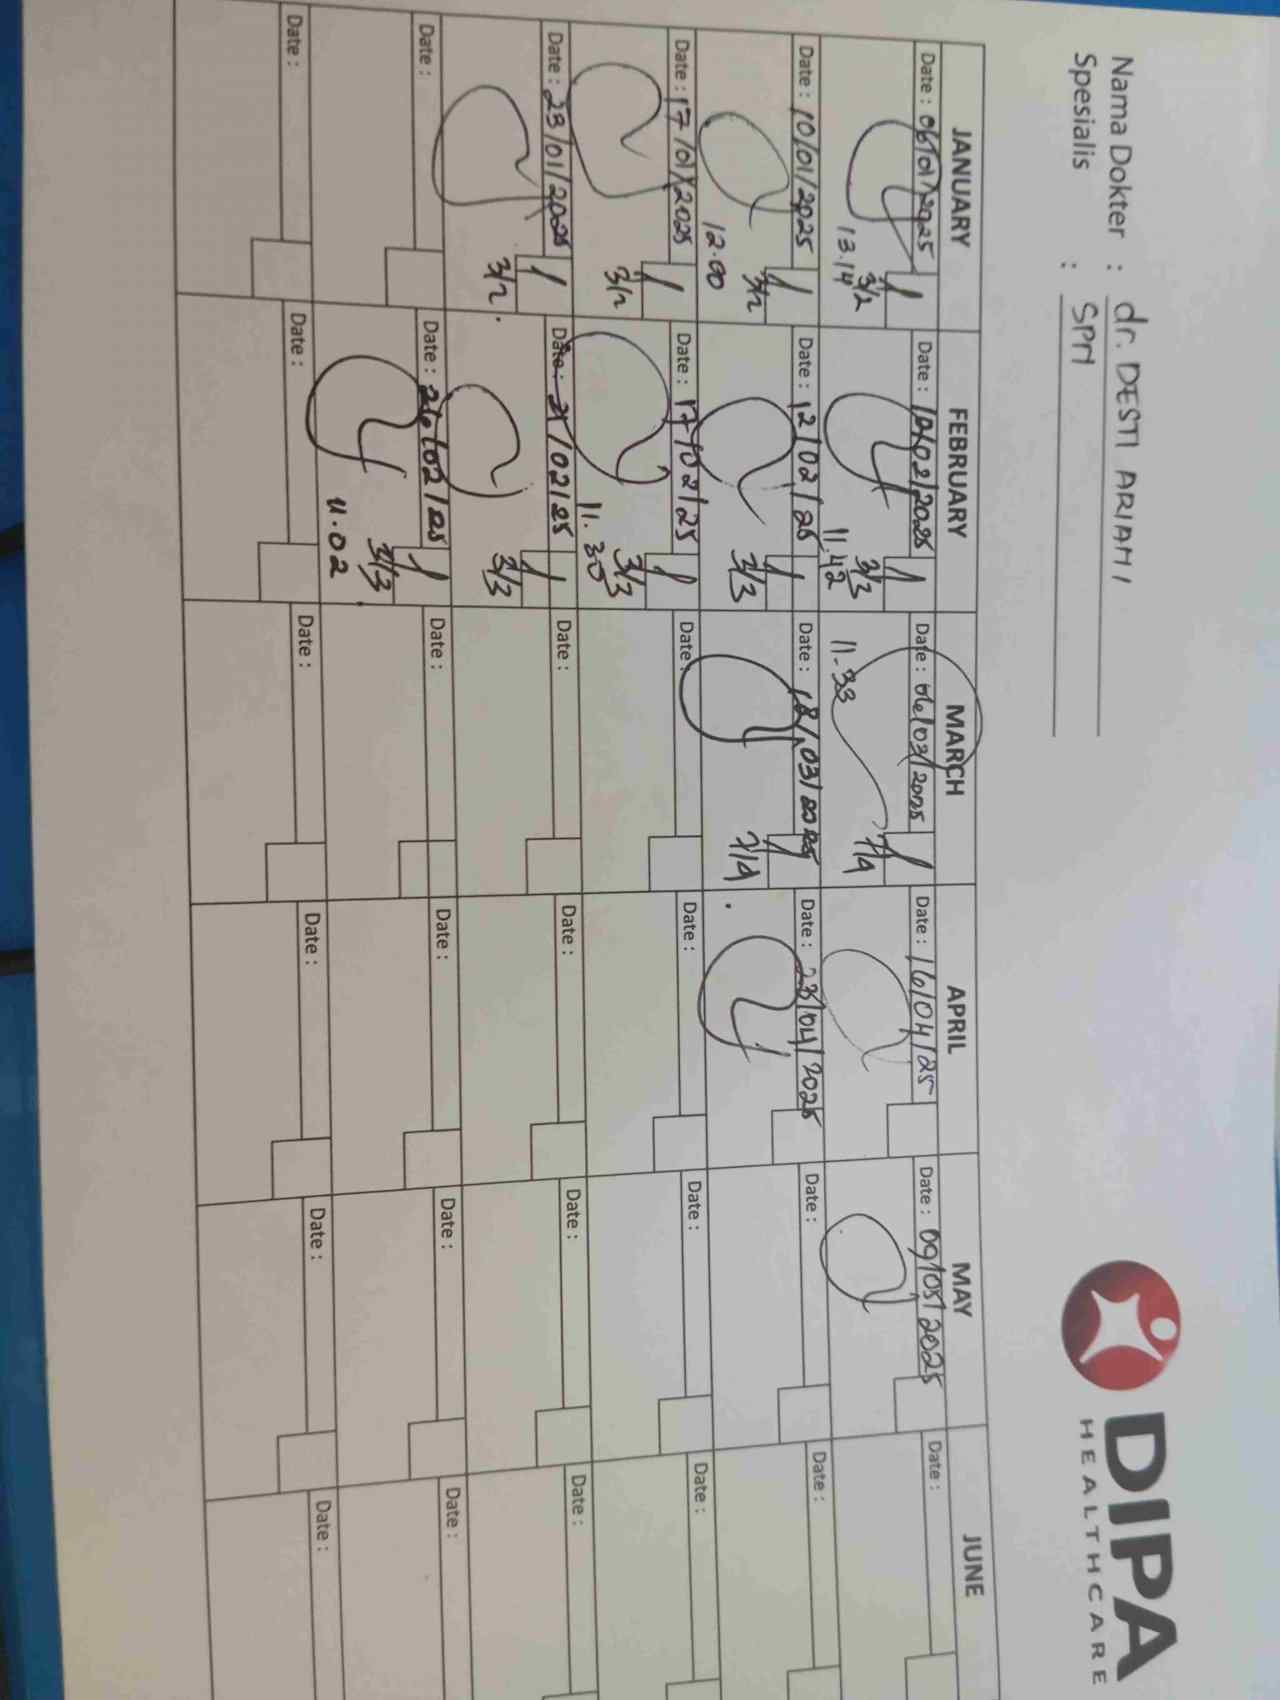 Nama Dokter : dr. DESTI ARIANI
Spesialis : SPM
DIPA
HEALTHCARE
JANUARY FEBRUARY MARCH APRIL MAY JUNE
Date : 06/01/2025 Date : 10/02/2025 Date : 06/03/2025 Date : 16/04/25 Date : 09/05/2025 Date :
3/2 3/3 7/4
13.14 11.42 11.33
Date : 10/01/2025 Date : 12/02/25 Date : 18/03/2025 Date : 23/04/2025 Date : Date :
3/2 3/3 7/4
12.00
Date : 17/01/2025 Date : 17/02/25 Date : Date : Date : Date :
3/2 3/3
11.30
Date : 23/01/2025 Date : 21/02/25 Date : Date : Date : Date :
3/2 3/3
Date : Date : 26/02/25 Date : Date : Date : Date :
3/3
11.02
Date : Date : Date : Date : Date : Date :